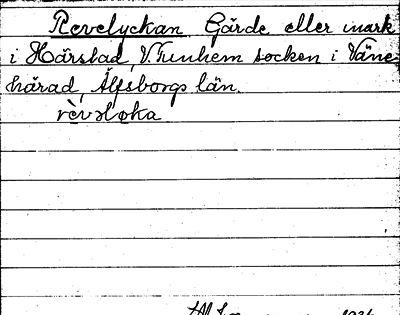 Revelyckan Gärde eller mark
i Härstad, V. Tunhem socken i Väne
härad, Älfsborgs län.